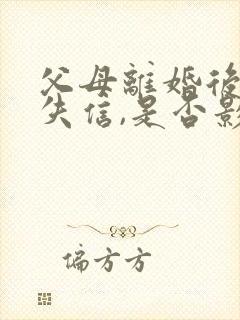 父母離婚後
失信,是否影
偏方方